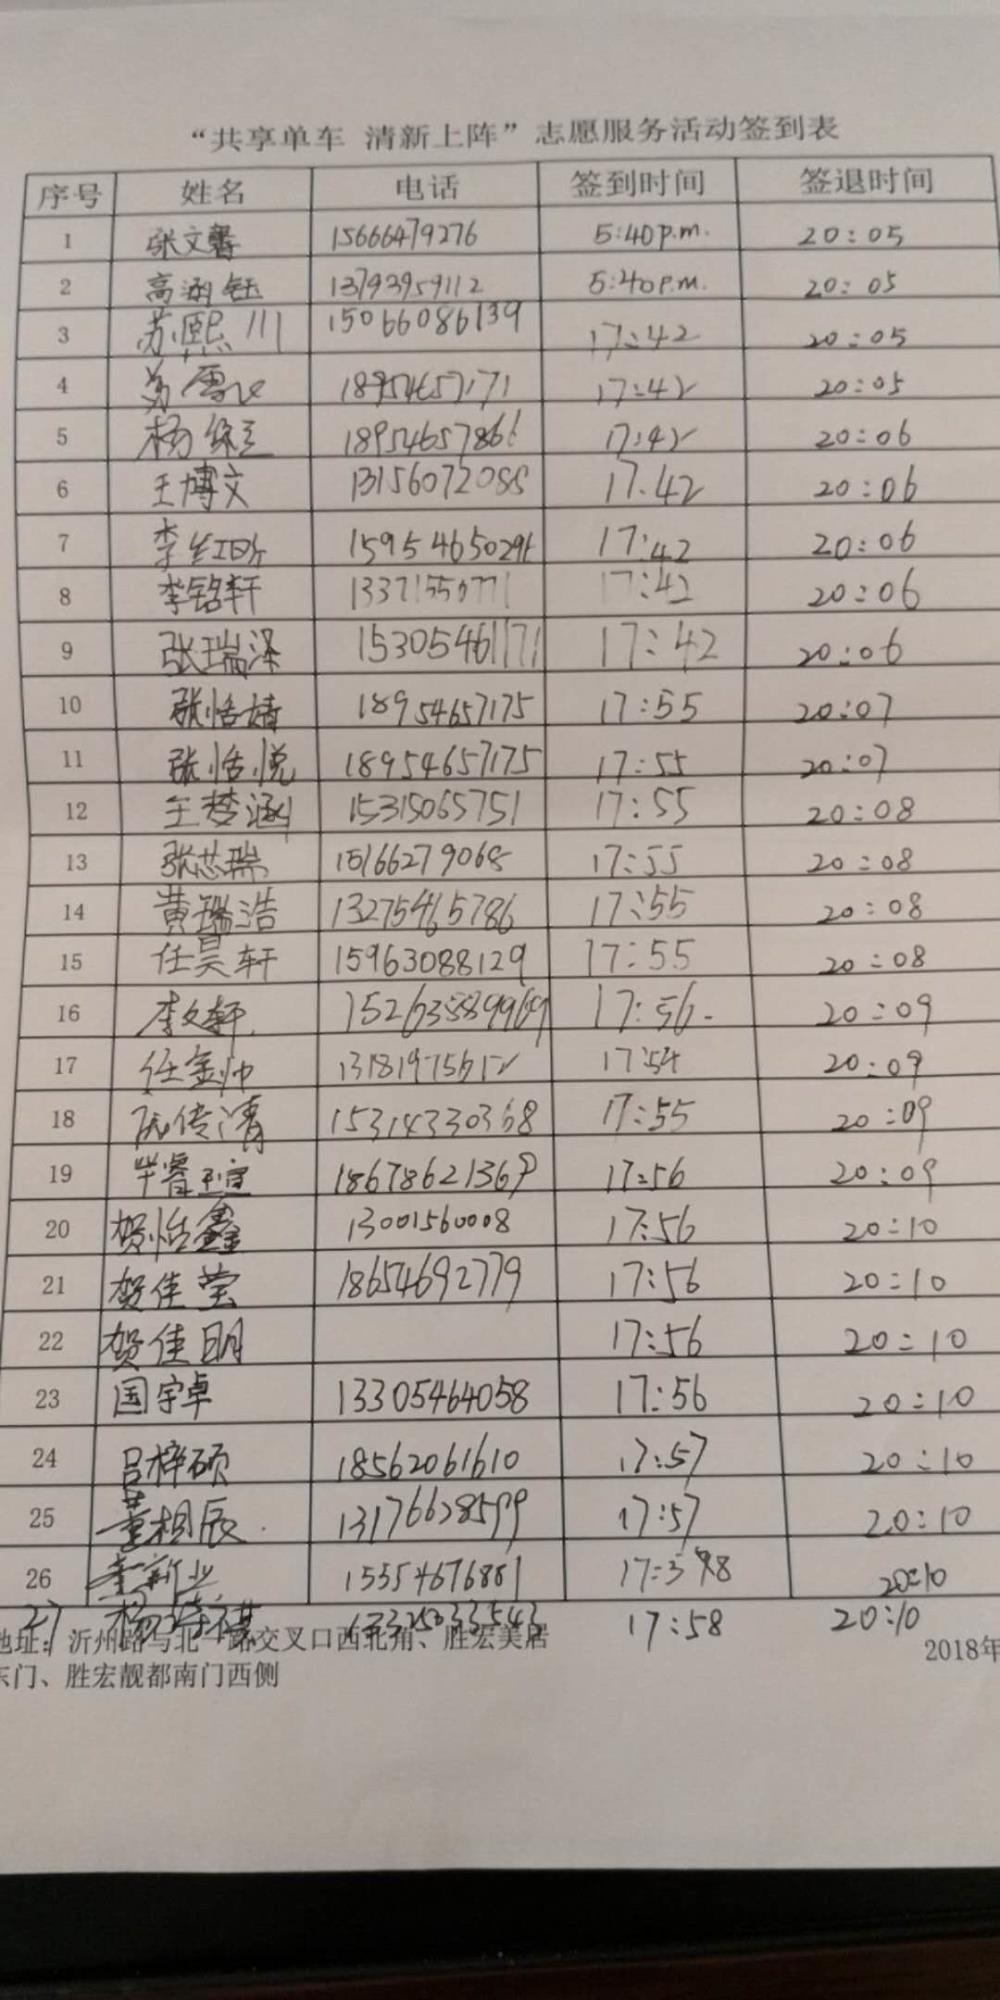 “共享单车 清新上阵”志愿服务活动签到表
序号 姓名 电话 签到时间 签退时间
1 张文馨 15666479276 5:40p.m. 20:05
2 高涵钰 13793959112 5:40p.m. 20:05
3 苏熙川 15066086139 17:42 20:05
4 18954657171 17:42 20:05
5 杨 18954657866 17:42 20:06
6 王博文 13156072088 17.42 20:06
7 李 17:42 20:06
8 李铭轩 13371550771 17:42 20:06
9 张瑞泽 15305461171 17:42 20:06
10 张恬婧 18954657175 17:55 20:07
11 张恬悦 18954657175 17:55 20:07
12 王梦涵 15315065751 17:55 20:08
13 张芯瑞 15166279068 17:55 20:08
14 黄瑞浩 13275465786 17:55 20:08
15 任昊轩 15963088129 17:55 20:08
16 李文轩 17:56 20:09
17 任金帅 17:54 20:09
18 传清 15314330368 17:55 20:09
19 毕睿瑄 18678621369 17:56 20:09
20 贺怡鑫 13001560008 17:56 20:10
21 贺佳莹 18654692779 17:56 20:10
22 贺佳明 17:56 20:10
23 国宇卓 13305464058 17:56 20:10
24 吕梓硕 18562061610 17:57 20:10
25 董相辰 13176628599 17:57 20:10
26 新业 15554676881 20:10
27 杨 17:58 20:10
地址：沂州路与北一路交叉口西北角、胜宏美居
东门、胜宏靓都南门西侧
2018年